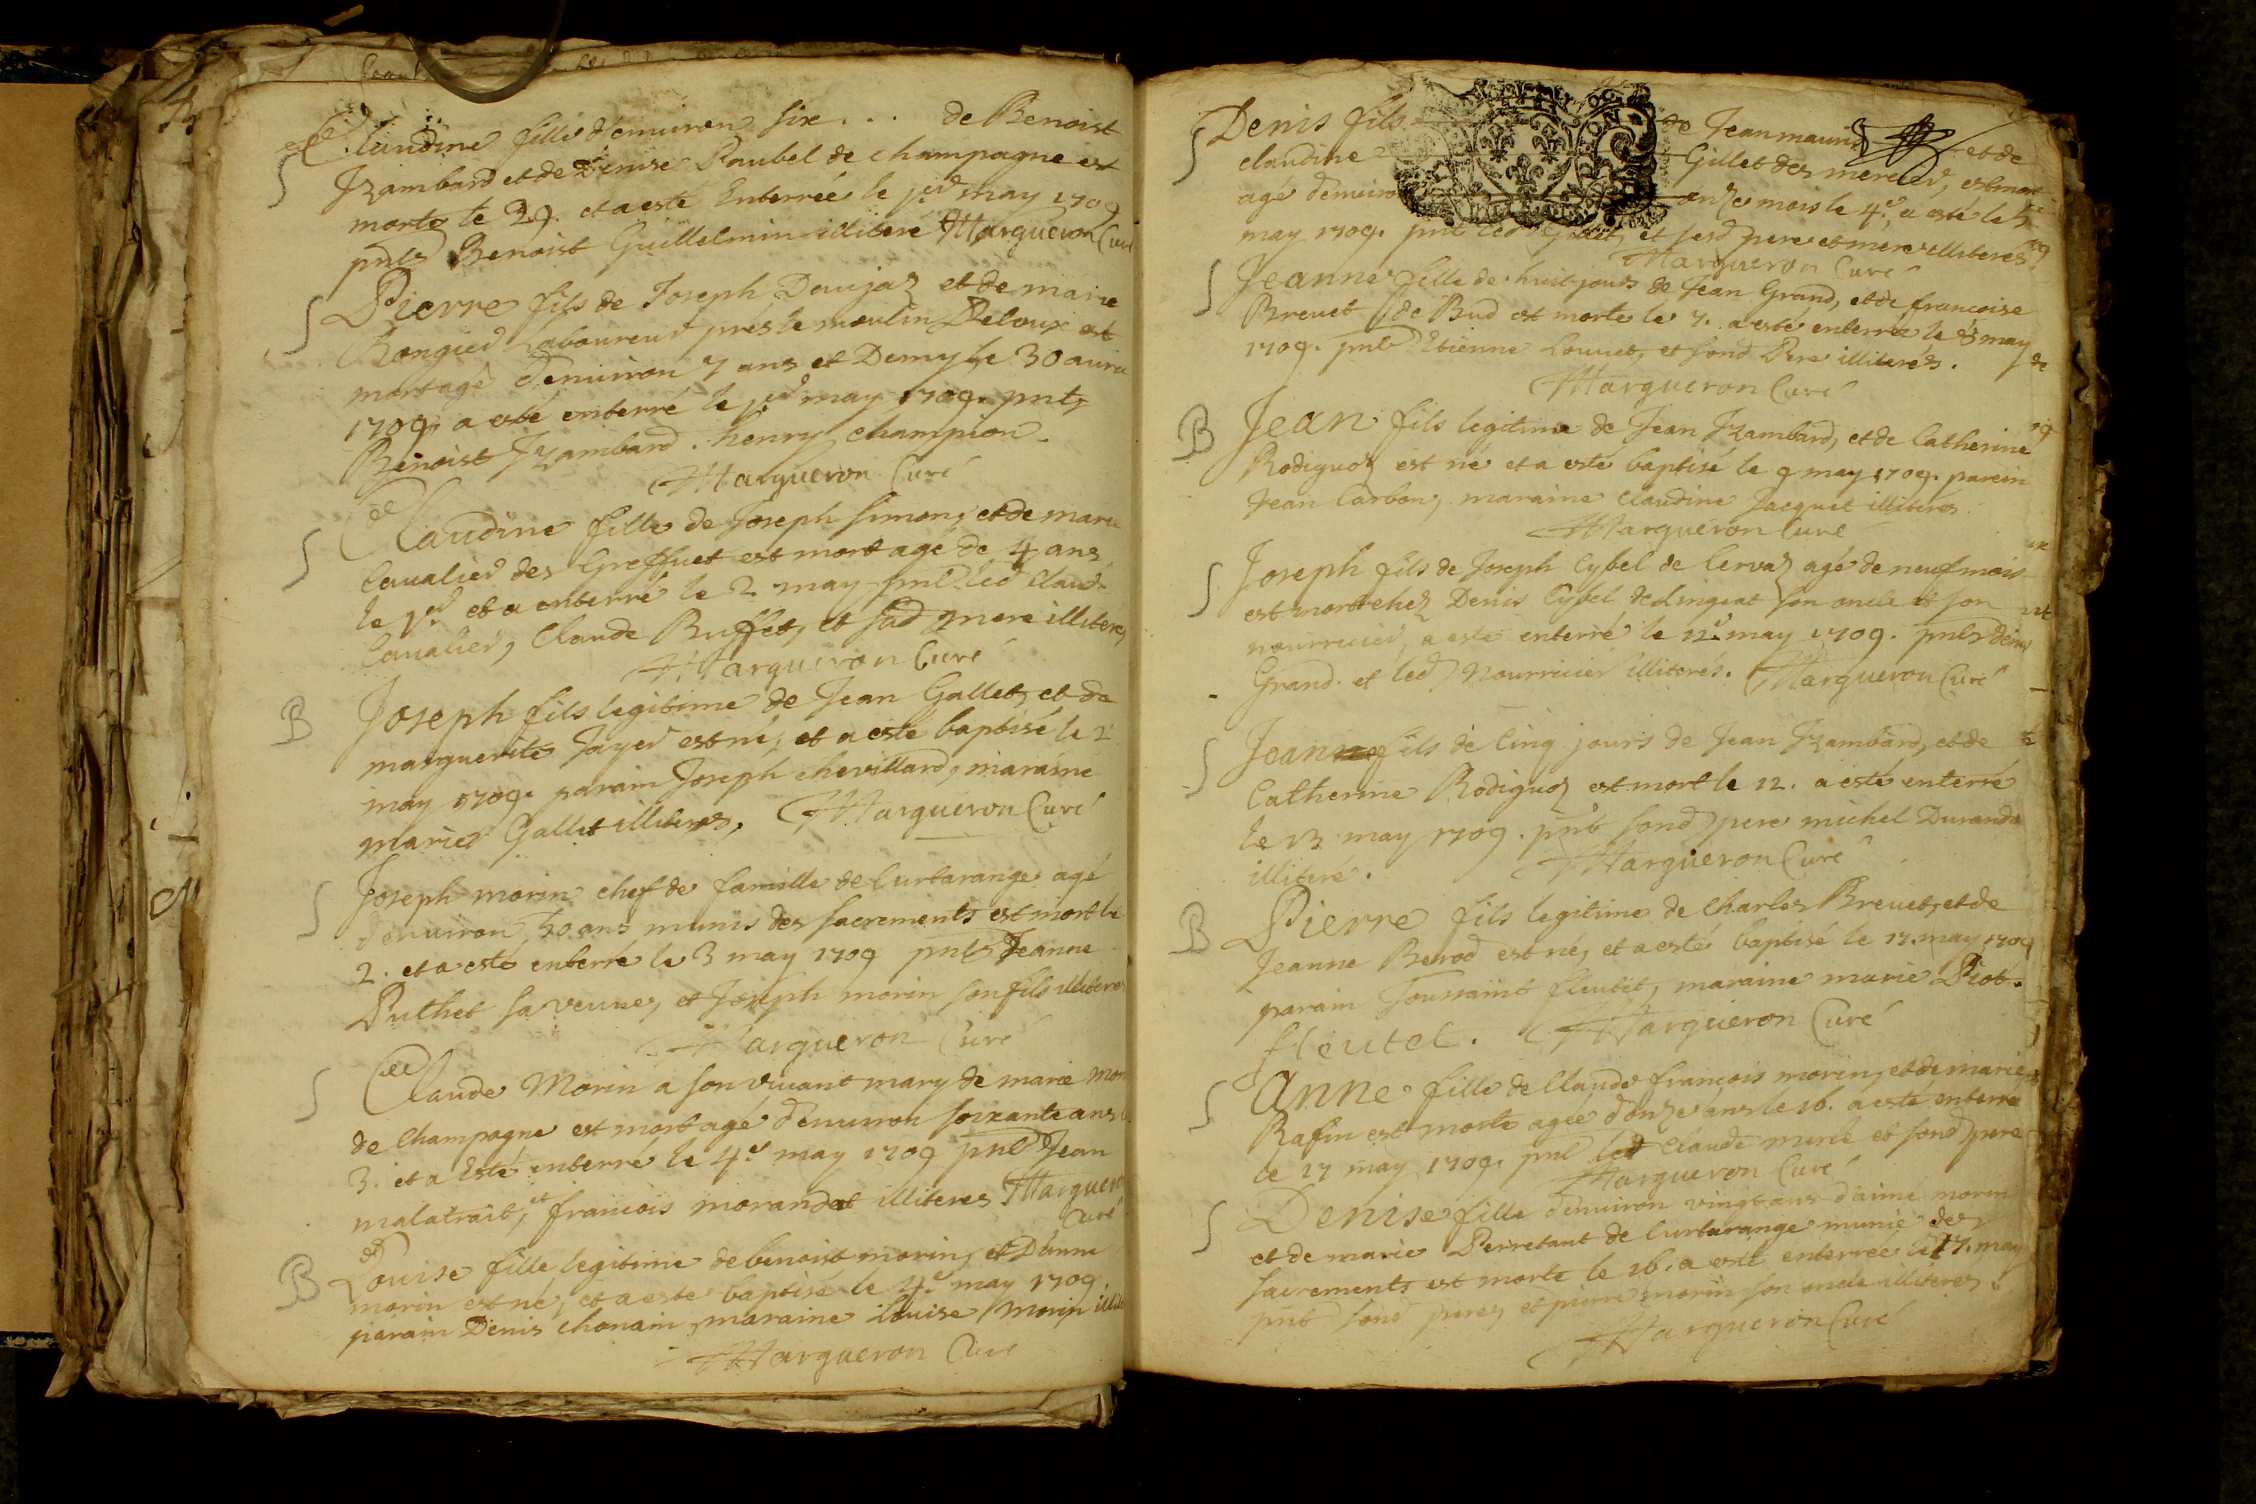 Claudine fille d'enuiron six . . . de Benoist
Izambard et de Denise Raubel de champagne est
morte le 29. et a esté Enterrée le jer may 1709
pnts Benoist Guillelmin illiteré Margueron Curé
S
Pierre fils de Joseph Daujaz et de marie
Rongier Laboureur prés le moulin Deloux est
mort agé d'enuiron 7 ans et Demy le 30 auril
1709. a esté enterré le jer may 1709. pnts
Benoist Izambard. henry champion.
Margueron Curé
S
Claudine fille de Joseph Simon, et de marie
Caualier des Greffiet est mort agé de 4 ans
le 1er et a enterré le 2 may pnts led Claude
Caualier, Claude Buffet, et sad mere illiteres
Margueron Curé
S
B
Joseph fils legitime de Jean Gallet, et de
marguerite Jayer est né, et a esté baptisé le 2
may 1709. parain Joseph chevillard, maraine
marie Gallet illiteres. Margueron Curé
S
Joseph morin chef de famille de Curtarange agé
d'enuiron 50 ans munis des sacrements est mort le
2. et a esté enterré le 3 may 1709 pnts Jeanne
Puthet sa veuue, et Joseph morin son fils illiteres
Margueron Curé
S
Claude Morin a son viuant mary de marie
de champagne est mort agé d'enuiron soixante ans
3. et a Esté enterré le 4e may 1709 pnts Jean
malatrait, et francois morandat illiteres Margueron
Curé
B
Louise fille legitime de benoist morin, et D'anne
morin est né, et a esté baptisé le 4e may 1709.
parain Denis chonain, maraine Louise Morin
Margueron Curé
S
Denis fils de Jean mauris et de
claudine Gillet des mercier, est mort
agé d'enuiron onze mois le 4e a esté le 5e
may 1709. pnt led Gillet, et sesd pere et mere illiteres
Margueron Curé
S
Jeanne fille de huit jours de Jean Grand, et de francoise
Breuet de Bud est morte le 7. a esté enterrée le 8 may
1709. pnts Etienne Louuet, et sond Pere illiterés.
Margueron Curé
B
Jean fils legitime de Jean Izambard, et de Catherine
Rodiguoz est né et a esté baptisé le 9 may 1709. parein
Jean Carbon, maraine Claudine Jacquet illiteres.
Margueron Curé
S
Joseph fils de Joseph Cybel de Cervaz agé de neuf mois
est mort chez Denis Cybel de Lingeat son oncle et son
nourricier, a esté enterré le 12e may 1709. pnts denis
Grand. et led Nourricier illiterés. Margueron Curé
S
Jean fils de Cinq jours de Jean Izambard, et de
Catherine Rodiguoz est mort le 12. a esté enterré
le 13 may 1709. pnts sond pere michel Durand
illiteré. Margueron Curé
B
Pierre fils legitime de Charles Breuet, et de
Jeanne Berod est né, et a esté baptisé le 17. may 1709
parain Toussaint fleutet, maraine marie Piot.
fleutet. Margueron Curé
S
Anne fille de Claude francois morin, et de marie
Rafin est morte agée d'onze ans le 16. a esté enterré
le 17 may 1709. pnt led Claude morin et sond pere
Margueron Curé
S
Denise fille d'enuiron vingt ans d'aimé morin
et de marie Perretant de Curtarange munie des
sacrements est morte le 16. a esté enterrée le 17. may
pnts sond pere, et pierre morin son oncle illiteres
Margueron Curé